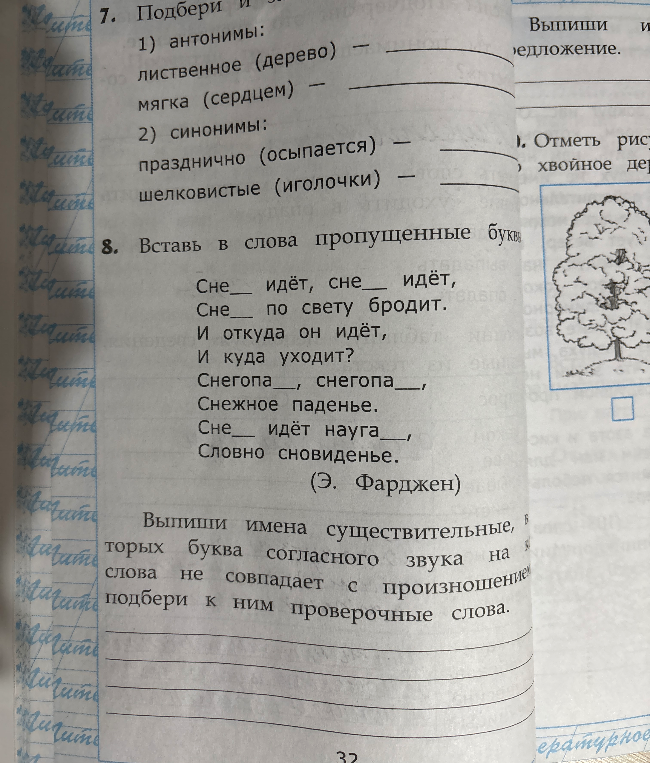 7. Подбери и
1) антонимы:
лиственное (дерево) —
мягка (сердцем) —
2) синонимы:
празднично (осыпается) —
шелковистые (иголочки) —
8. Вставь в слова пропущенные букв
Сне__ идёт, сне__ идёт,
Сне__ по свету бродит.
И откуда он идёт,
И куда уходит?
Снегопа__, снегопа__,
Снежное паденье.
Сне__ идёт науга__,
Словно сновиденье.
(Э. Фарджен)
Выпиши имена существительные, в
торых буква согласного звука на
слова не совпадает с произношением
подбери к ним проверочные слова.
32
Выпиши и
редложение.
). Отметь рису
хвойное дер
ературное